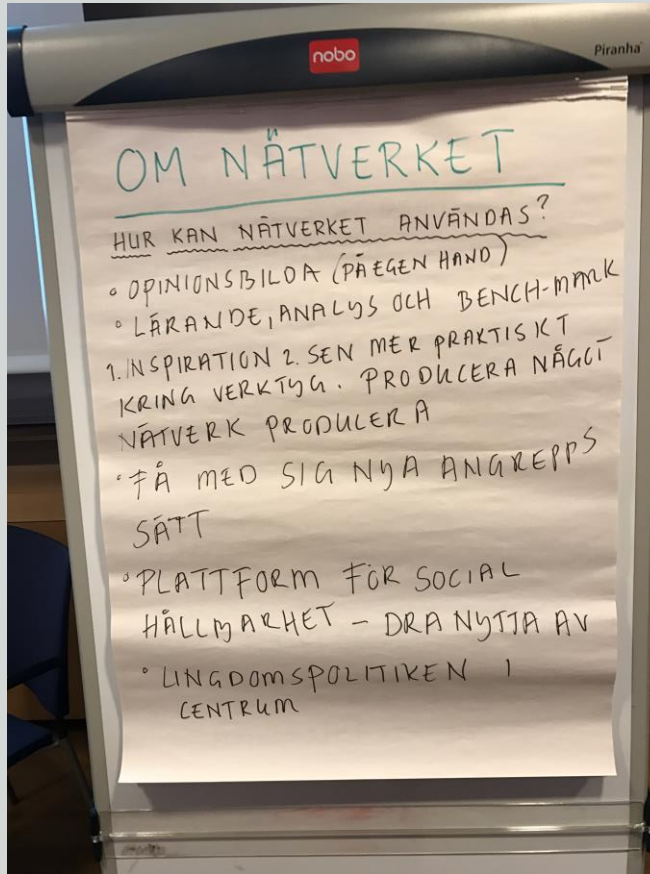 nobo
Piranha
OM NÄTVERKET
HUR KAN NÄTVERKET ANVÄNDAS?
• OPINIONSBILDA (PÅ EGEN HAND)
• LÄRANDE, ANALYS OCH BENCH-MARK
1. INSPIRATION 2. SEN MER PRAKTISKT
KRING VERKTYG. PRODUCERA NÅGOT
NÄTVERK PRODUCERA
• FÅ MED SIG NYA ANGREPPS
SÄTT
• PLATTFORM FÖR SOCIAL
HÅLLBARHET – DRA NYTTA AV
• UNGDOMSPOLITIKEN I
CENTRUM